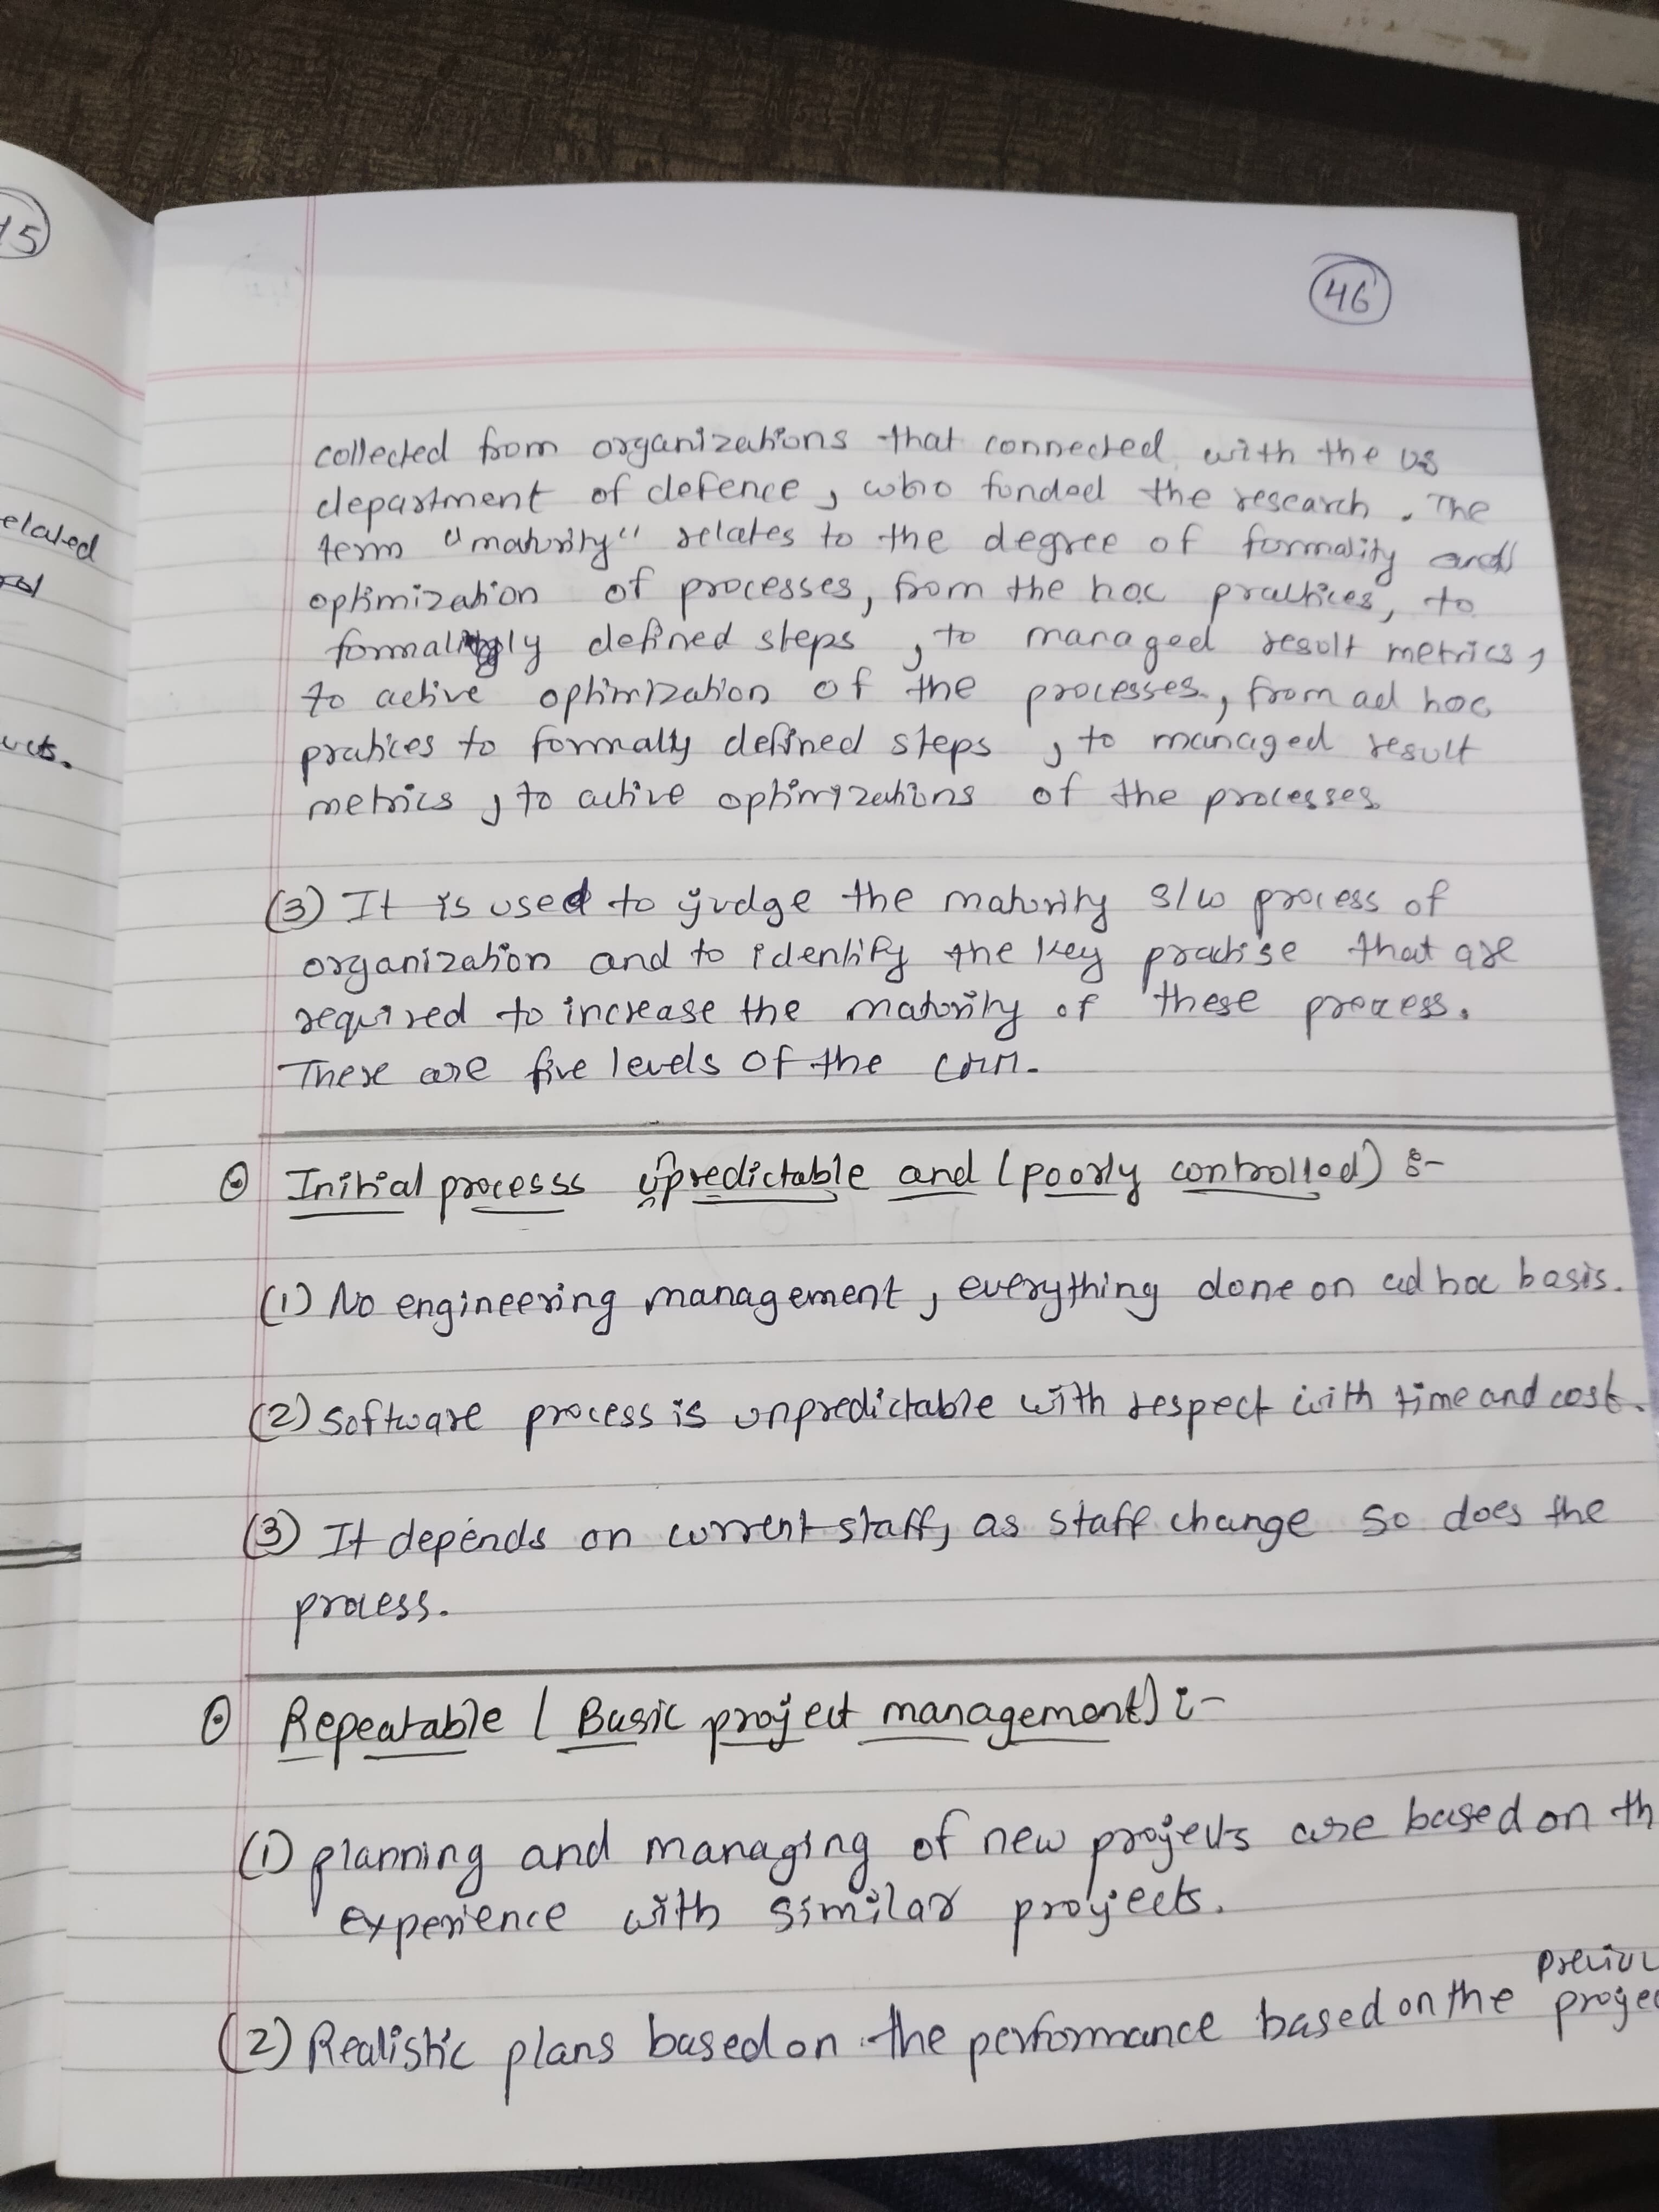 15
elated
ucts.
46
collected from organizations that connected with the US
department of defence, who funded the research. The
term "maturity" relates to the degree of formality and
optimization of processes, from the hoc pratices, to
formally defined steps, to managed result metrics,
to active optimization of the processes, from ad hoc
pratices to formally defined steps, to managed result
metrics, to active optimizations of the processes
(3) It is used to judge the maturity s/w process of
organization and to identify the key pratise that are
required to increase the maturity of these process.
There are five levels of the CMM.
Initial processs upredictable and (poorly controlled) :-
(1) No engineering management, everything done on ad hoc basis.
(2) Software process is unpredictable with respect with time and cost.
(3) It depends on current staff, as staff change so does the
process.
Repeatable (Basic project management) :-
(1) planning and managing of new projects are based on th
experience with similar projects.
previou
(2) Realistic plans based on the performance based on the projec